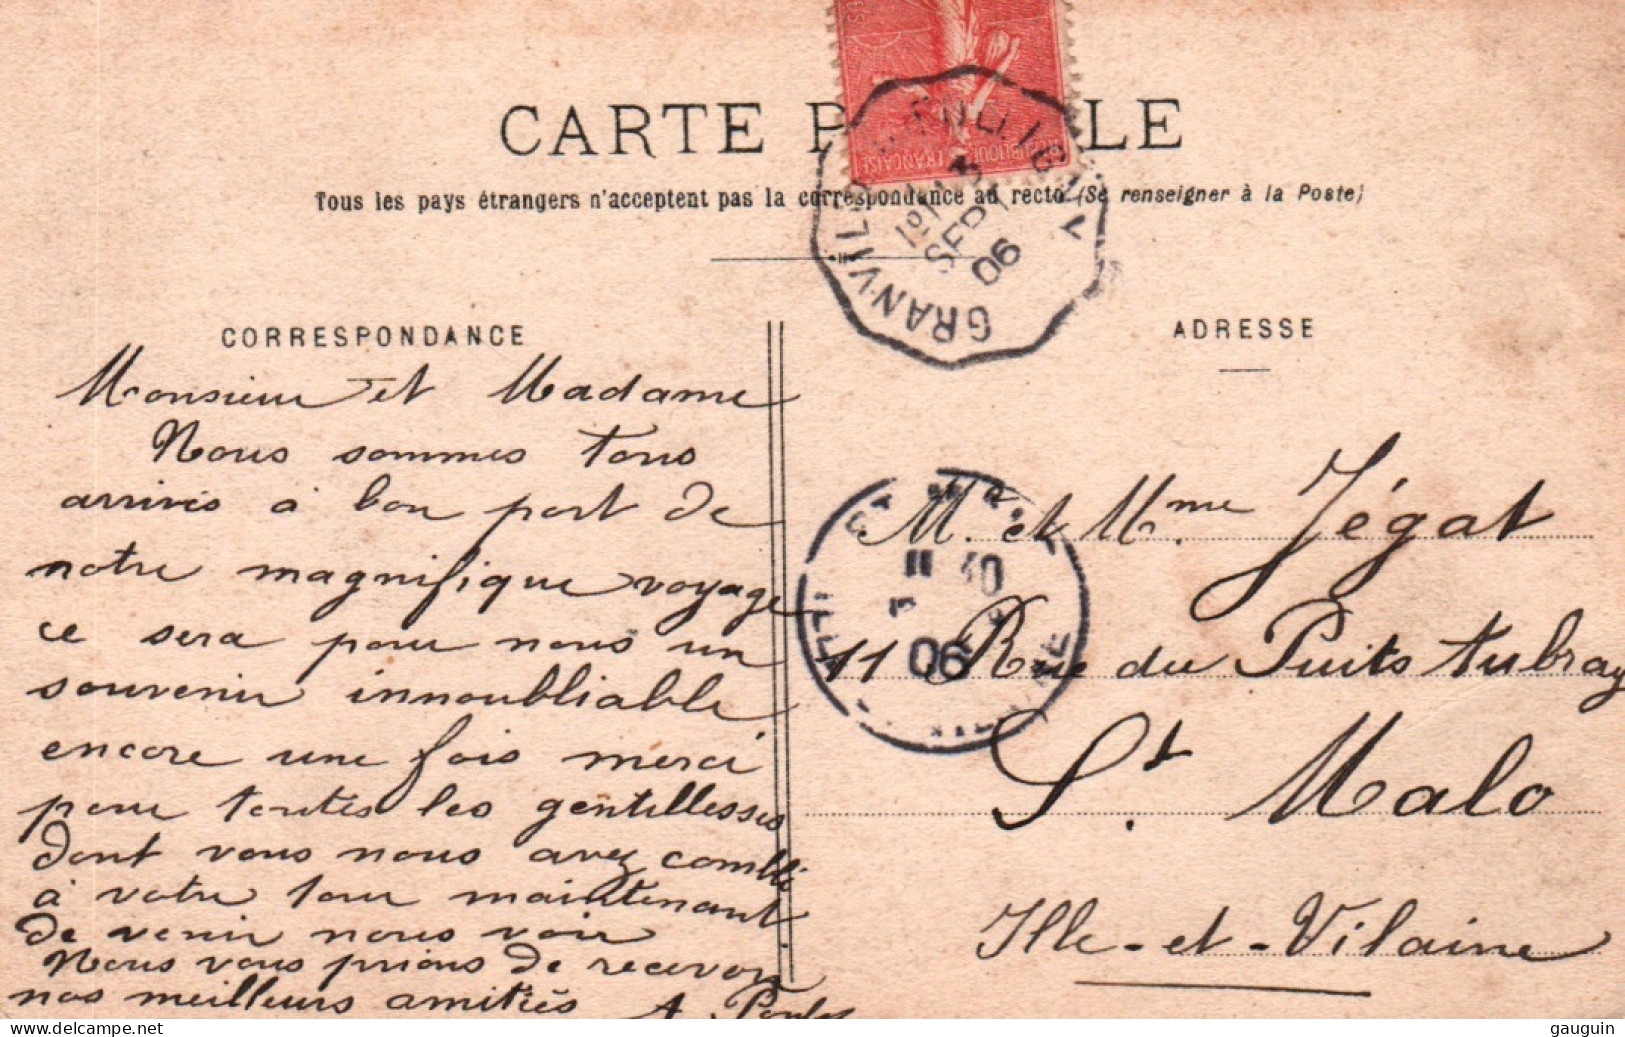 CARTE P LE
Tous les pays étrangers n'acceptent pas la correspondance au recto (Se renseigner à la Poste)
RÉPUBLIQUE FRANÇAISE
GRANVILLE
SEPT
06
CORRESPONDANCE
Monsieur et Madame
Nous sommes tous
arrivés à bon port de
notre magnifique voyage
ce sera pour nous un
souvenir innoubliable
encore une fois merci
pour toutes les gentillesses
dont vous nous avez combli
à votre tour maintenant
de venir nous voir
Nous vous prions de recevoir
nos meilleurs amitiés A.
ADRESSE
11 40
06
M. et Mme. Jégat
11 Rue du Puits Aubray
St. Malo
Ille-et-Vilaine
gauguin